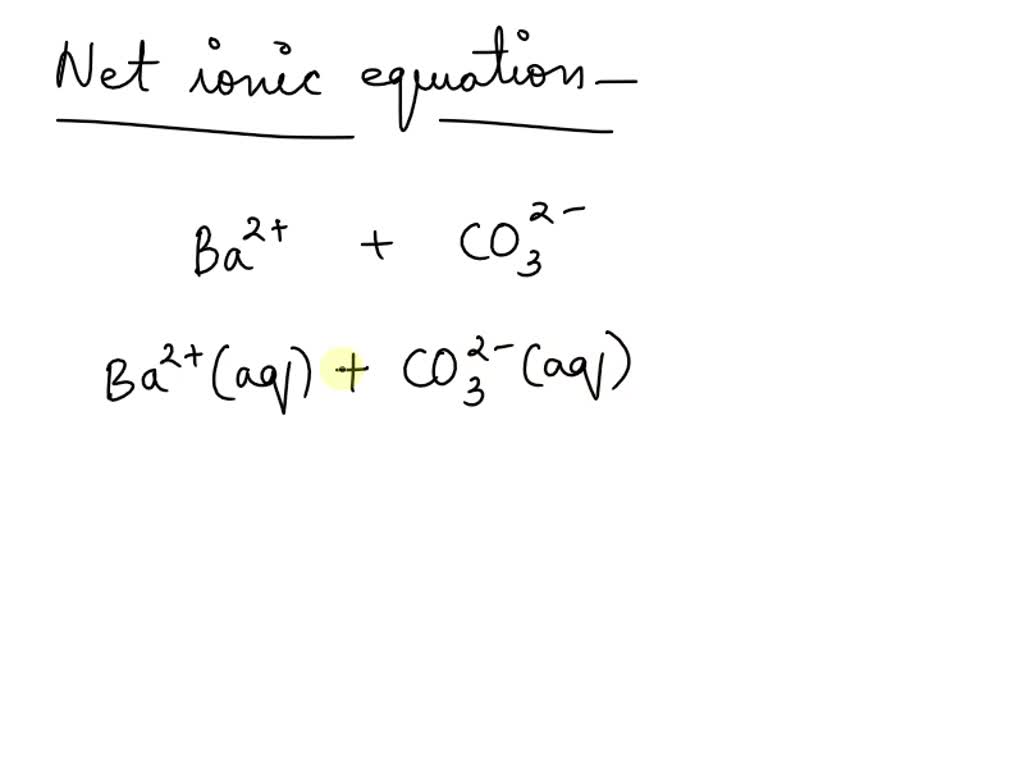 Net ionic equation –
Ba²⁺ + CO₃²⁻
Ba²⁺(aq) + CO₃²⁻(aq)